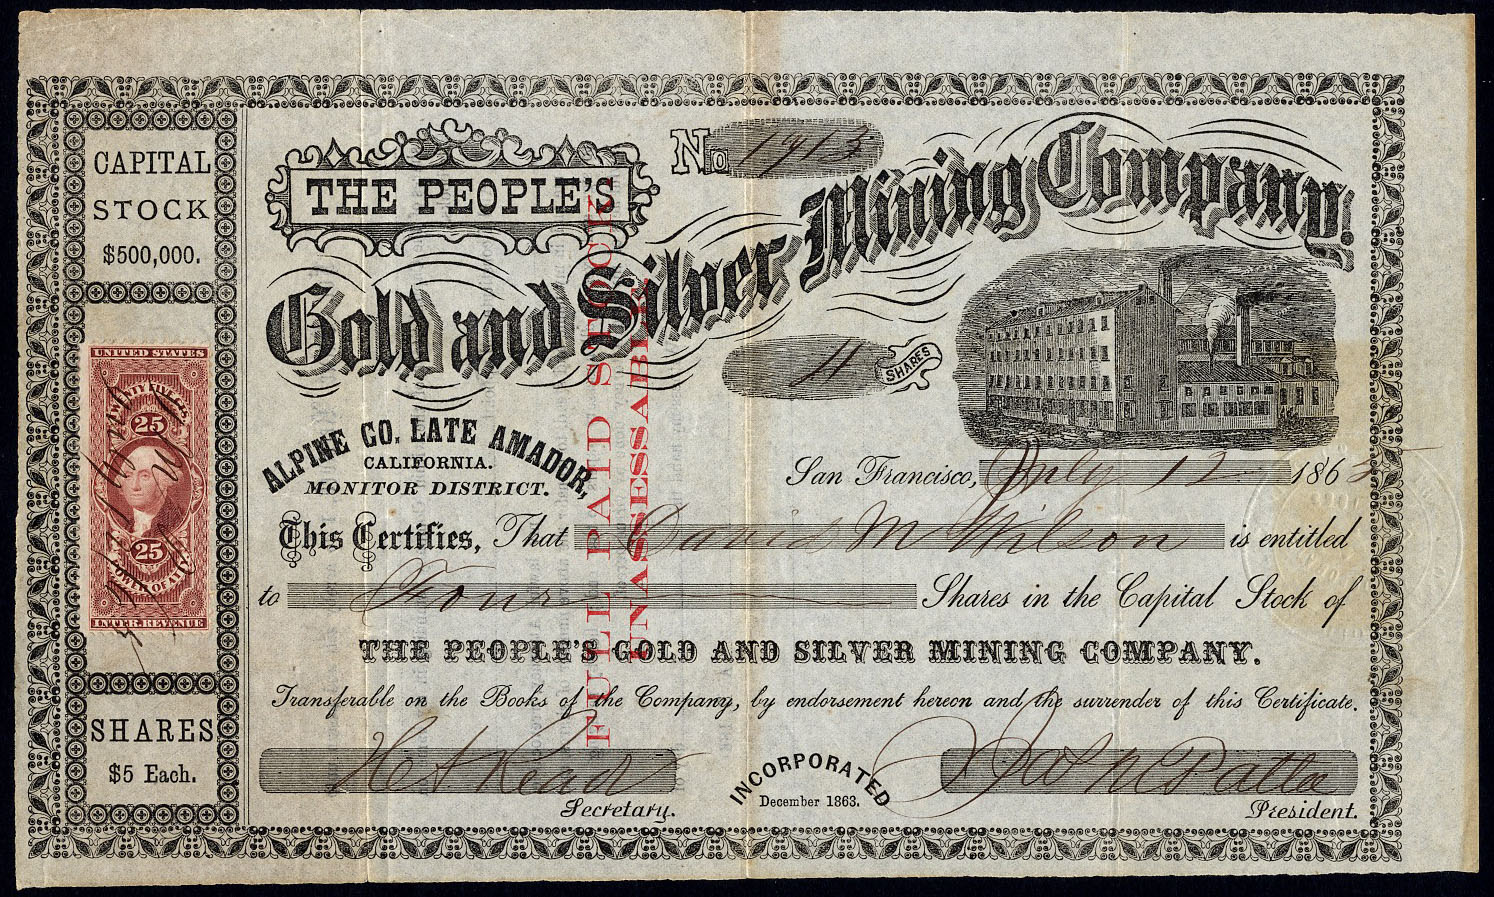 CAPITAL
STOCK
$500,000.
UNITED STATES
TWENTY FIVE C'TS
25
25
POWER OF AT'Y
INTER. REVENUE
SHARES
$5 Each.
THE PEOPLE'S
No 1913
Gold and Silver Mining Company.
4 SHARES
ALPINE CO. LATE AMADOR,
CALIFORNIA.
MONITOR DISTRICT.
San Francisco, July 12 1865
This Certifies, That David M Wilson is entitled
to Four Shares in the Capital Stock of
THE PEOPLE'S GOLD AND SILVER MINING COMPANY.
Transferable on the Books of the Company, by endorsement hereon and the surrender of this Certificate.
FULL PAID STOCK
UNASSESSABLE
H A Read
Secretary.
INCORPORATED
December 1863.
Pattee
President.